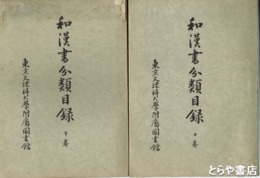 和漢書分類目録
上巻
東京文理科大學附属圖書館
和漢書分類目録
下巻
東京文理科大學附属圖書館
とらや書店